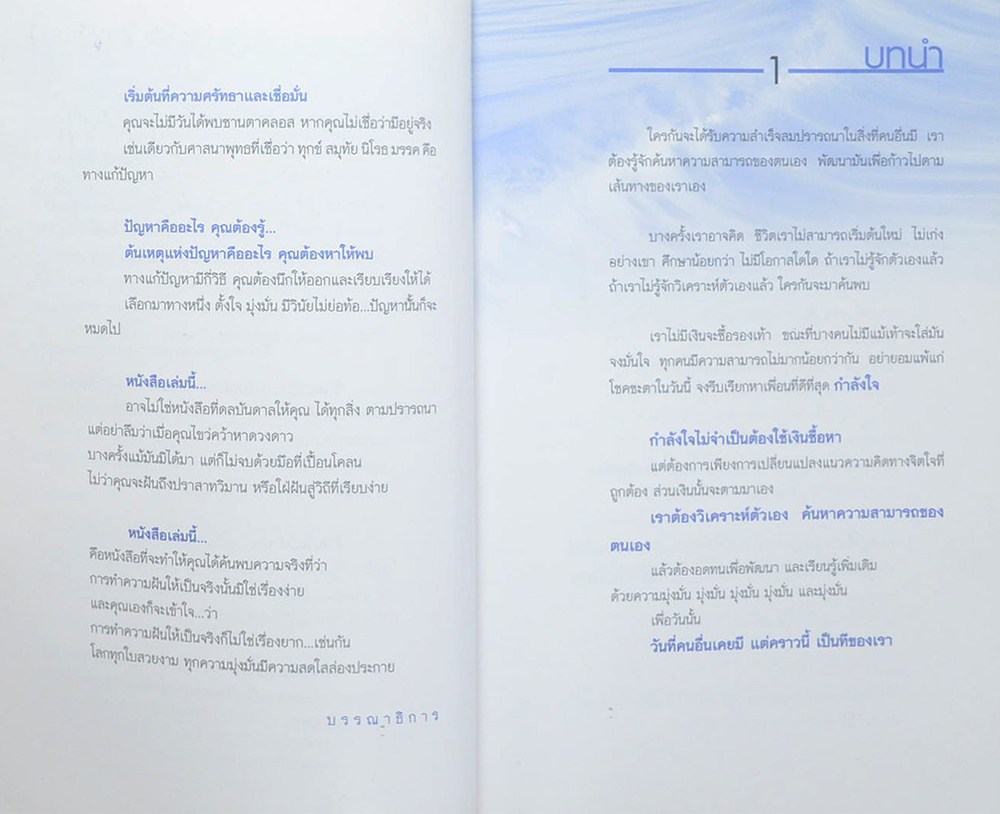 เริ่มต้นที่ความศรัทธาและเชื่อมั่น
คุณจะไม่มีวันได้พบซานตาคลอส หากคุณไม่เชื่อว่ามีอยู่จริง
เช่นเดียวกับศาสนาพุทธที่เชื่อว่า ทุกข์ สมุทัย นิโรธ มรรค คือ
ทางแก้ปัญหา
ปัญหาคืออะไร คุณต้องรู้...
ต้นเหตุแห่งปัญหาคืออะไร คุณต้องหาให้พบ
ทางแก้ปัญหามีกี่วิธี คุณต้องนึกให้ออกและเรียบเรียงให้ได้
เลือกมาทางหนึ่ง ตั้งใจ มุ่งมั่น มีวินัยไม่ย่อท้อ...ปัญหานั้นก็จะ
หมดไป
หนังสือเล่มนี้...
อาจไม่ใช่หนังสือที่ดลบันดาลให้คุณ ได้ทุกสิ่ง ตามปรารถนา
แต่อย่าลืมว่าเมื่อคุณไขว่คว้าหาดวงดาว
บางครั้งแม้มันมิได้มา แต่ก็ไม่จบด้วยมือที่เปื้อนโคลน
ไม่ว่าคุณจะฝันถึงปราสาทวิมาน หรือใฝ่ฝันสู่วิถีที่เรียบง่าย
หนังสือเล่มนี้...
คือหนังสือที่จะทำให้คุณได้ค้นพบความจริงที่ว่า
การทำความฝันให้เป็นจริงนั้นมิใช่เรื่องง่าย
และคุณเองก็จะเข้าใจ...ว่า
การทำความฝันให้เป็นจริงก็ไม่ใช่เรื่องยาก...เช่นกัน
โลกทุกใบสวยงาม ทุกความมุ่งมั่นมีความสดใสส่องประกาย
บรรณาธิการ
1 บทนำ
ใครกันจะได้รับความสำเร็จสมปรารถนาในสิ่งที่คนอื่นมี เรา
ต้องรู้จักค้นหาความสามารถของตนเอง พัฒนามันเพื่อก้าวไปตาม
เส้นทางของเราเอง
บางครั้งเราอาจคิด ชีวิตเราไม่สามารถเริ่มต้นใหม่ ไม่เก่ง
อย่างเขา ศึกษาน้อยกว่า ไม่มีโอกาสใดใด ถ้าเราไม่รู้จักตัวเองแล้ว
ถ้าเราไม่รู้จักวิเคราะห์ตัวเองแล้ว ใครกันจะมาค้นพบ
เราไม่มีเงินจะซื้อรองเท้า ขณะที่บางคนไม่มีแม้เท้าจะใส่มัน
จงมั่นใจ ทุกคนมีความสามารถไม่มากน้อยกว่ากัน อย่ายอมแพ้แก่
โชคชะตาในวันนี้ จงรีบเรียกหาเพื่อนที่ดีที่สุด กำลังใจ
กำลังใจไม่จำเป็นต้องใช้เงินซื้อหา
แต่ต้องการเพียงการเปลี่ยนแปลงแนวความคิดทางจิตใจที่
ถูกต้อง ส่วนเงินนั้นจะตามมาเอง
เราต้องวิเคราะห์ตัวเอง ค้นหาความสามารถของ
ตนเอง
แล้วต้องอดทนเพื่อพัฒนา และเรียนรู้เพิ่มเติม
ด้วยความมุ่งมั่น มุ่งมั่น มุ่งมั่น มุ่งมั่น และมุ่งมั่น
เพื่อวันนั้น
วันที่คนอื่นเคยมี แต่คราวนี้ เป็นทีของเรา